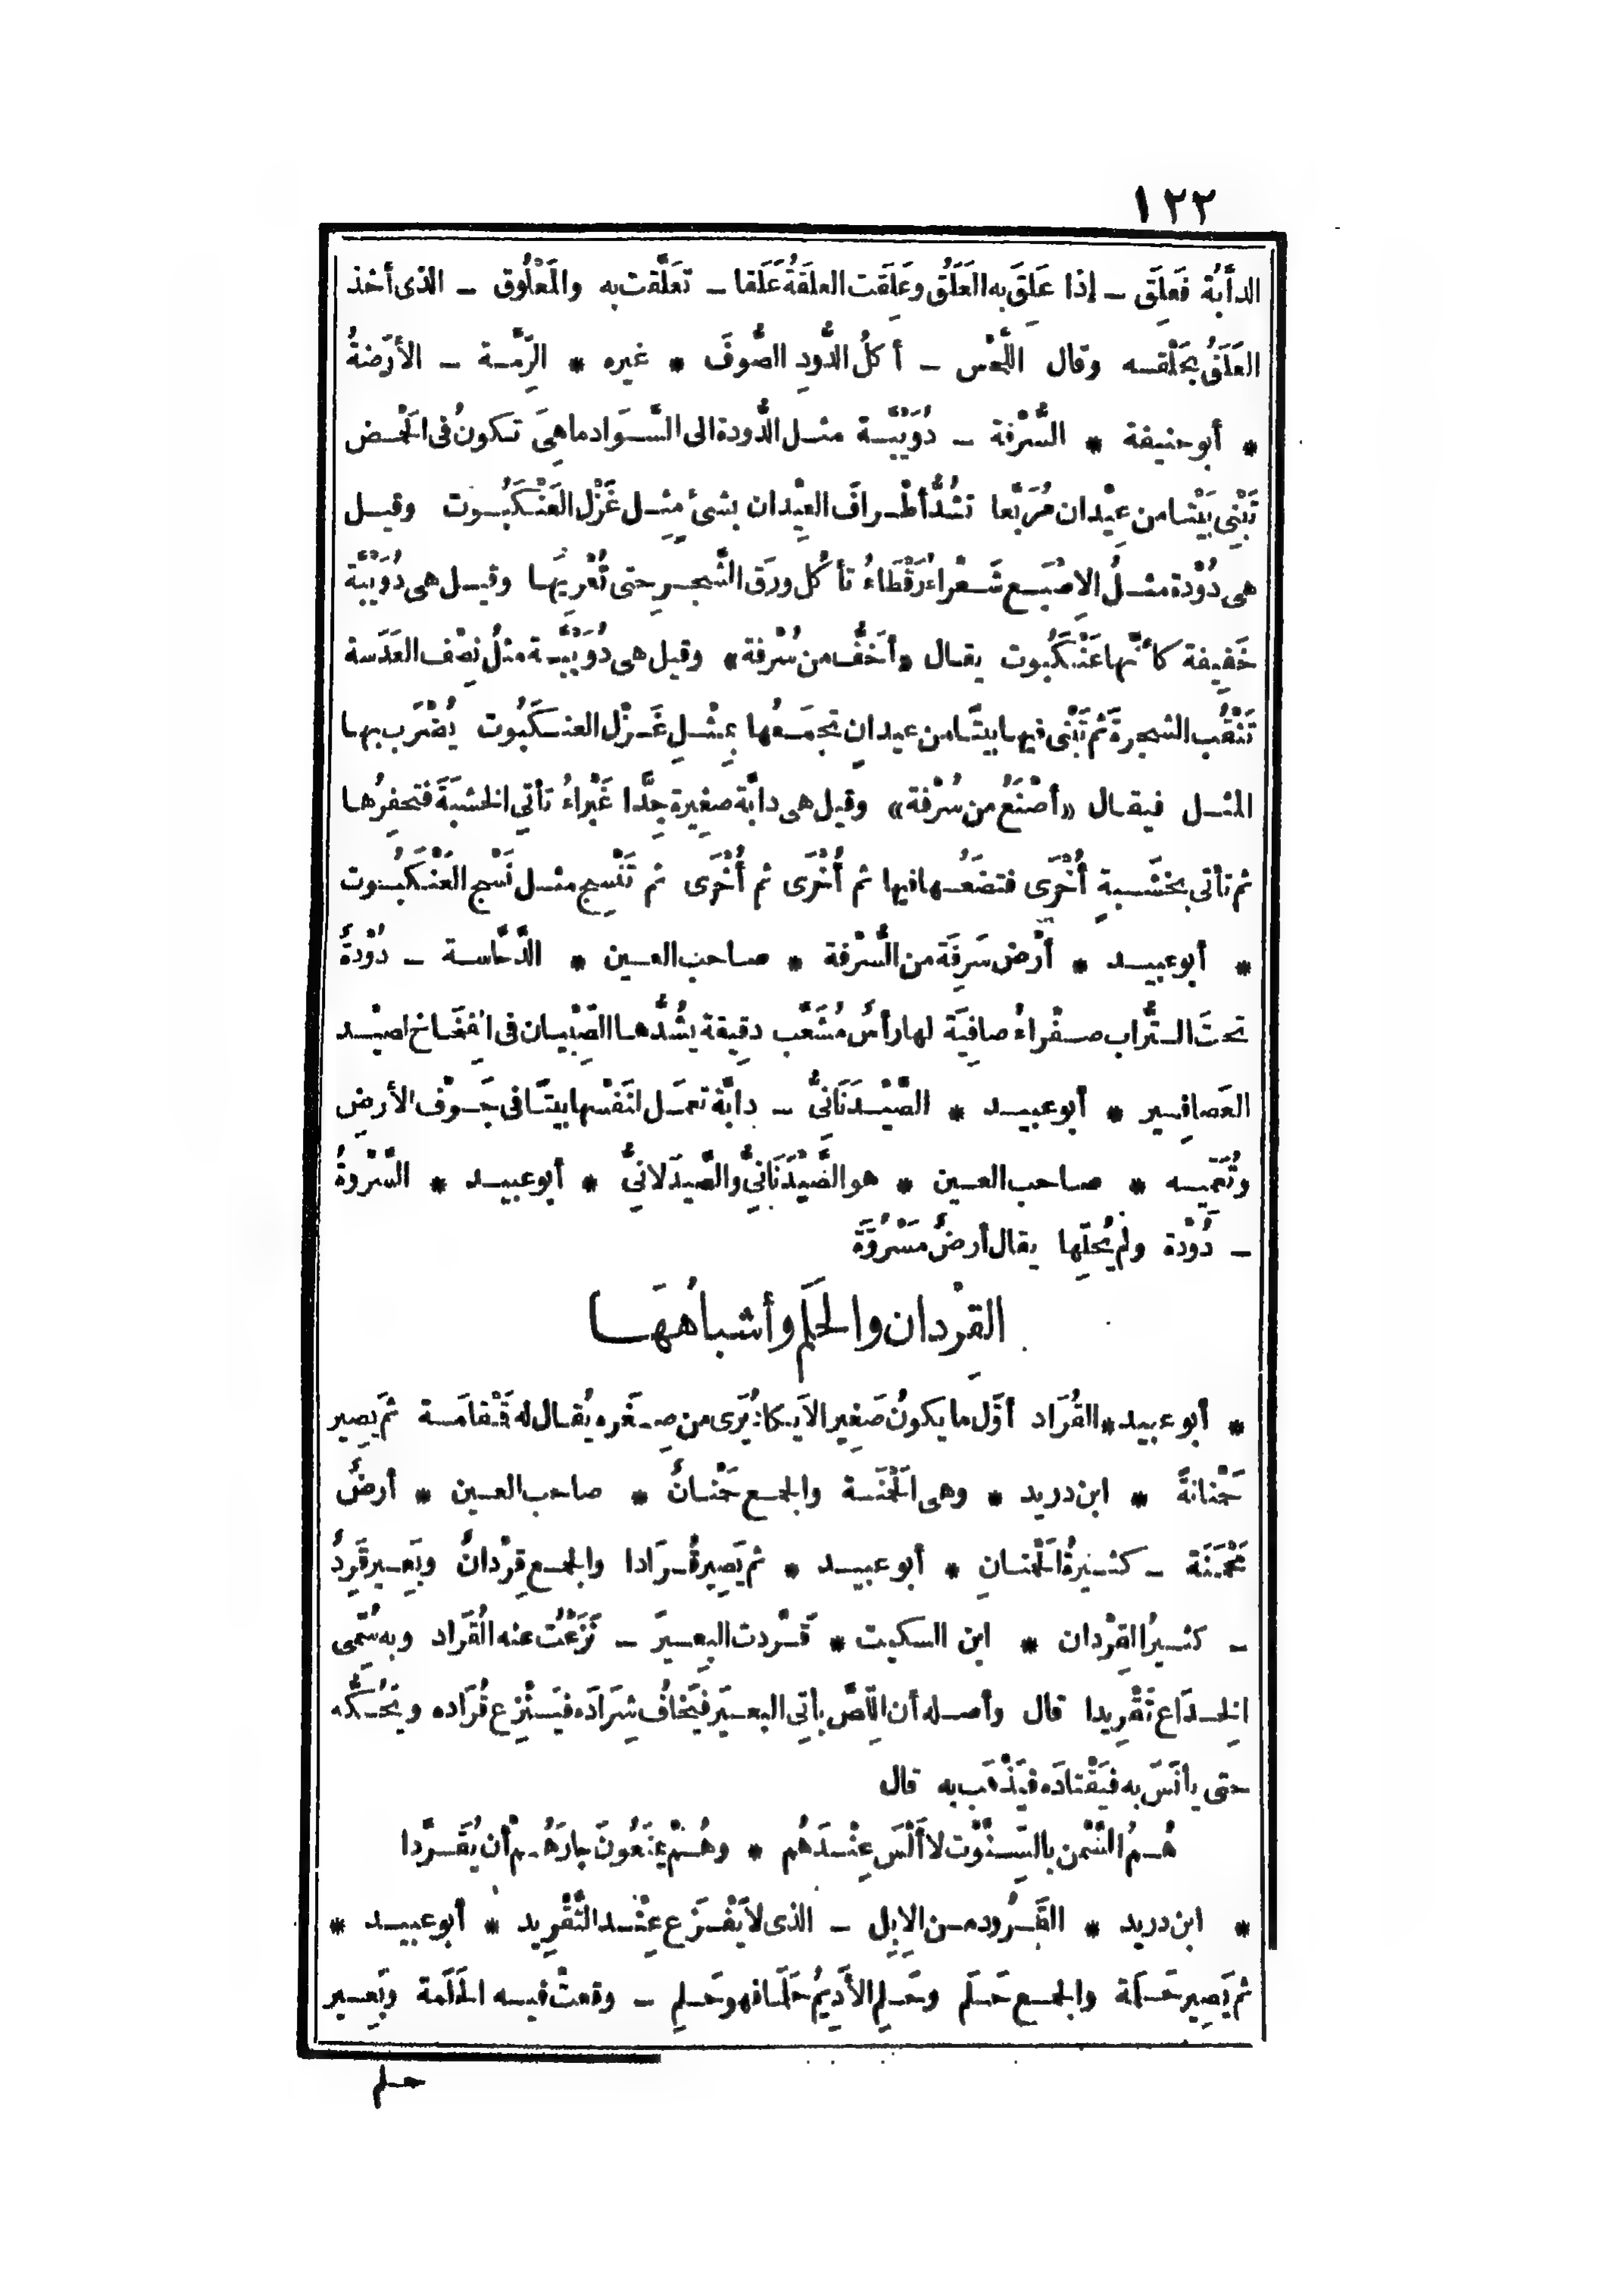 ١٢٢
الدابَّةُ فَعَلِقَ ـ إذا عَلِقَ به العَلَقُ وعَلِقَت العلَقةُ عَلَقا ـ تعَلَّقت به والمَعْلُوق ـ الذى أخذ
العَلَقُ بحَلْقه وقال اللَّحْس ـ أكلُ الدُّودِ الصُّوفَ * غيره * الرِّمَّة ـ الأرَضةُ
* أبو حنيفة * السُّرْفة ـ دُوَيْبَّة مثل الدُّودة الى السَّوَاد ما هِىَ تكونُ فى الحَمْض
تَبْنِى بَيْتا من عِيْدان مُرَبَّعا تشُدُّ أطْرافَ العِيْدان بشئ مِثْل غَزْل العَنْكَبُوت وقيل
هى دُوْدة مثلُ الاِصْبَع شَعْراءُ رَقْطَاءُ تأكُل ورَق الشَّجرِ حتى تُعْرِيَها وقيل هى دُوَيْبَّة
خَفِيفة كأنَّها عَنْكَبُوت يقال «أخَفُّ من سُرْفة» وقيل هى دُوَيْبَّة مثلُ نِصْف العَدَسة
تَنْقُب الشجرةَ ثم تَبْنى فيها بيتًا من عيدانٍ تجمَعُها بمِثْلِ غَزْل العنكَبُوت يُضْرَب بها
المثل فيقال «أصْنَعُ من سُرْفة» وقيل هى دابَّة صغِيرة جِدًّا غَبْراءُ تأتِى الخشبَةَ فتحفِرُها
ثم تأتى بخشَبةٍ أُخْرَى فتضَعُها فيها ثم أُخْرَى ثم أُخْرَى ثم تَنْسِج مثل نَسْج العَنْكَبُوت
* أبو عبيد * أرْض سَرِفَة من السُّرْفة * صاحب العين * الدَّسَّاسة ـ دُوْدةٌ
تحتَ التُّراب صفْراءُ صافِيَة لها رأسٌ مُشَعَّب دقِيقة يشُدُّها الصِّبْيان فى الفِخَاخ لصيْد
العَصافِير * أبو عبيد * الصَّيْدَنَانىُّ ـ دابَّة تعمَل لنَفْسها بيتًا فى جَوْف الأرضِ
وتُعَمِّيه * صاحب العين * هو الصَّيْدَنَانِىُّ والصَّيدَلانىُّ * أبو عبيد * السَّرْوةُ
ـ دُوْدة ولم يُحَلِّها يقال أرضٌ مَسْرُوَّة
القِرْدان والحَلَم وأشباهُهَا
* أبو عبيد * القُرَاد أوَّل ما يكونُ صَغِيرا لا يكادُ يُرَى من صِغَره يُقال له قَمْقامَة ثم يَصِير
حَمْنانةً * ابن دريد * وهى الحَمْنَة والجمع حَمْنانٌ * صاحب العين * أرضٌ
مَحْمَنَة ـ كثيرةُ الحَمْنانِ * أبو عبيد * ثم يَصِير قُرَادا والجمع قِرْدانٌ وبَعِير قَرِدٌ
ـ كثيرُ القِرْدان * ابن السكيت * قَرَّدت البعِيرَ ـ نَزَعْتُ عنه القُرَاد وبه سُمِّى
الخِدَاع تَقْرِيدا قال وأصله أن اللِّصَّ يأتى البعيرَ فيَخافُ شِرَادَه فيَنْزِع قُرَاده ويَحُكُّه
حتى يأنَسَ به فيَقْتادَه فيَذْهَب به قال
هُمُ السَّمْن بالسَّنُّوت لا ألْسَ عِنْدَهُم * وهُمْ يَمْنَعُونَ جارَهُمْ أن يُقَرَّدا
* ابن دريد * القَرُود من الاِبِل ـ الذى لا يَفْزَع عِنْد التَّقْرِيد * أبو عبيد *
ثم يَصِير حَلَمة والجمع حَلَم وحَلِم الأَدِيمُ حَلَمًا فهو حَلِم ـ وقعتْ فيه الحَلَمة وبَعِير
حلم